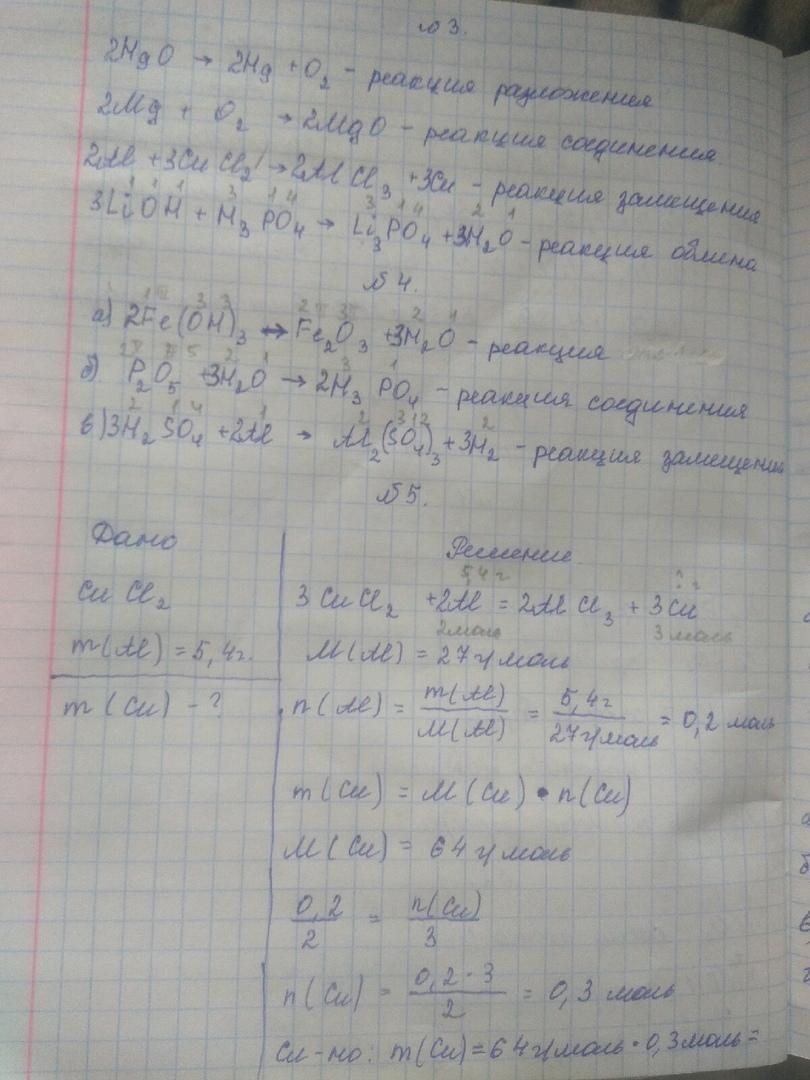 №3.
2HgO → 2Hg + O₂ - реакция разложения
2Mg + O₂ → 2MgO - реакция соединения
2Al + 3CuCl₂ → 2AlCl₃ + 3Cu - реакция замещения
3LiOH + H₃PO₄ → Li₃PO₄ + 3H₂O - реакция обмена
№4.
а) 2Fe(OH)₃ ↔ Fe₂O₃ + 3H₂O - реакция
б) P₂O₅ + 3H₂O → 2H₃PO₄ - реакция соединения
в) 3H₂SO₄ + 2Al → Al₂(SO₄)₃ + 3H₂ - реакция замещения
№5.
Дано
CuCl₂
m(Al) = 5,4г.
m(Cu) - ?
Решение
5,4г ? г
3CuCl₂ + 2Al = 2AlCl₃ + 3Cu
2моль 3моль
M(Al) = 27г/моль
n(Al) = m(Al)/M(Al) = 5,4г/27г/моль = 0,2 моль
m(Cu) = M(Cu) • n(Cu)
M(Cu) = 64 г/моль
0,2/2 = n(Cu)/3
n(Cu) = 0,2·3/2 = 0,3 моль
Сл-но: m(Cu) = 64г/моль · 0,3моль =